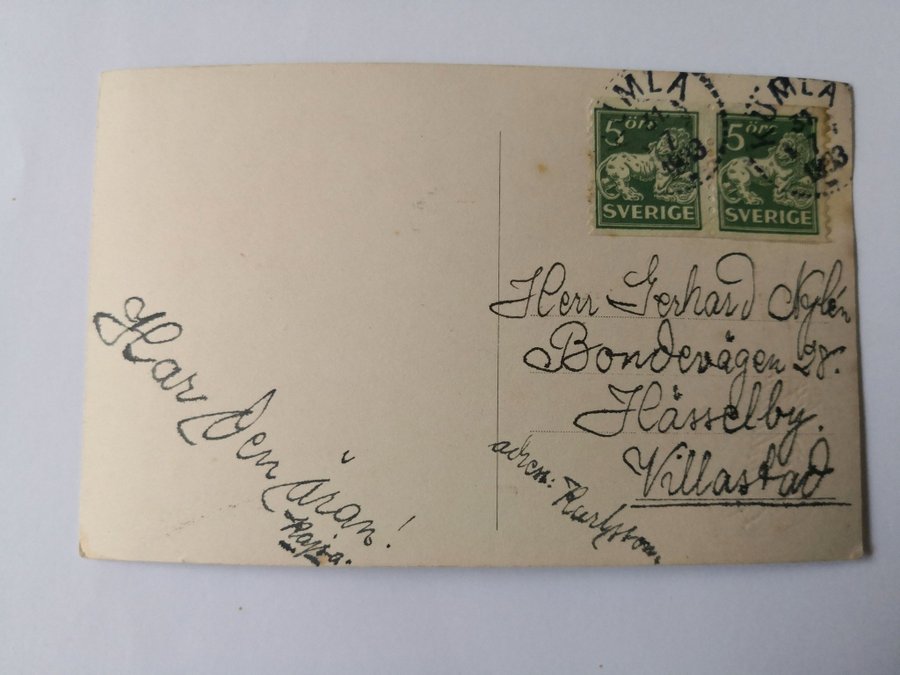 KUMLA
KUMLA
5 öre
5 öre
SVERIGE
SVERIGE
Herr Gerhard Nylén
Bondevägen 28.
Hässelby.
Villastad
adress: Karlsson.
Har den äran!
Kajsa.